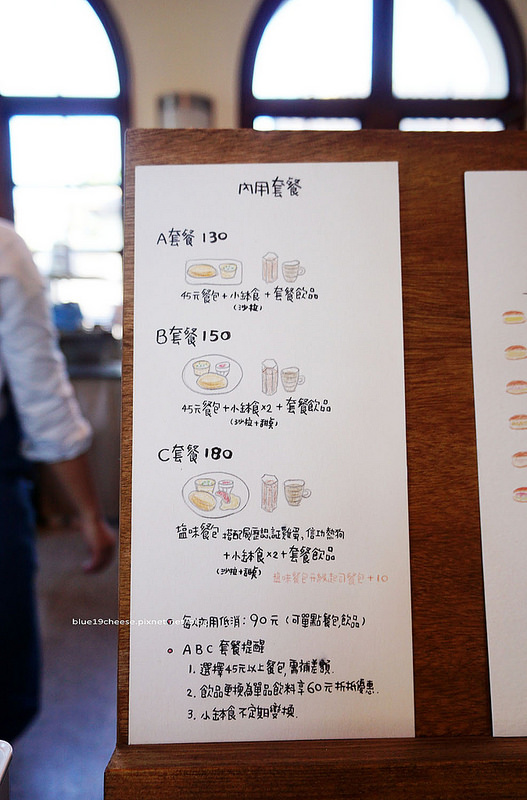 內用套餐
A套餐 130
45元餐包+小缽食+套餐飲品
(沙拉)
B套餐 150
45元餐包+小缽食×2+套餐飲品
(沙拉+甜桌)
C套餐 180
塩味餐包 搭配履歷認証雞蛋、信功熱狗
+小缽食×2+套餐飲品
(沙拉+甜桌)
塩味餐包升級起司餐包+10
每人內用低消:90元(可單點餐包,飲品)
blue19cheese.pixnet.net
ABC套餐提醒
1. 選擇45元以上餐包,需補差額.
2. 飲品更換為單品飲料享60元折抵優惠.
3. 小缽食不定期變換.